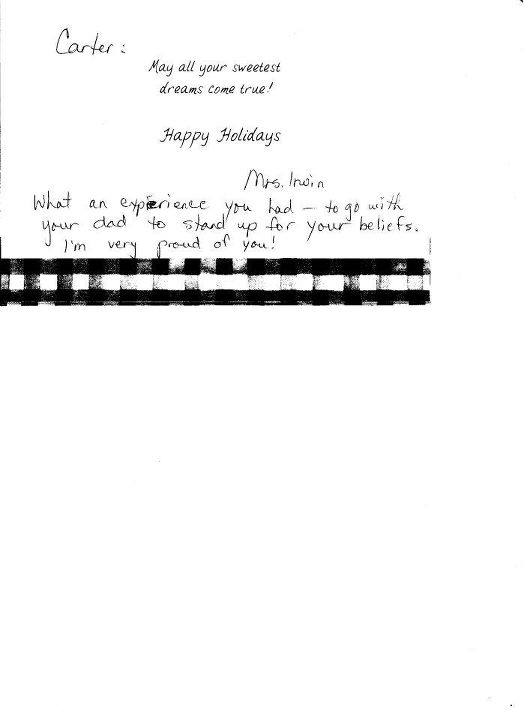 Carter:
May all your sweetest
dreams come true!
Happy Holidays
Mrs. Irwin
What an experience you had – to go with
your dad to stand up for your beliefs.
I'm very proud of you!